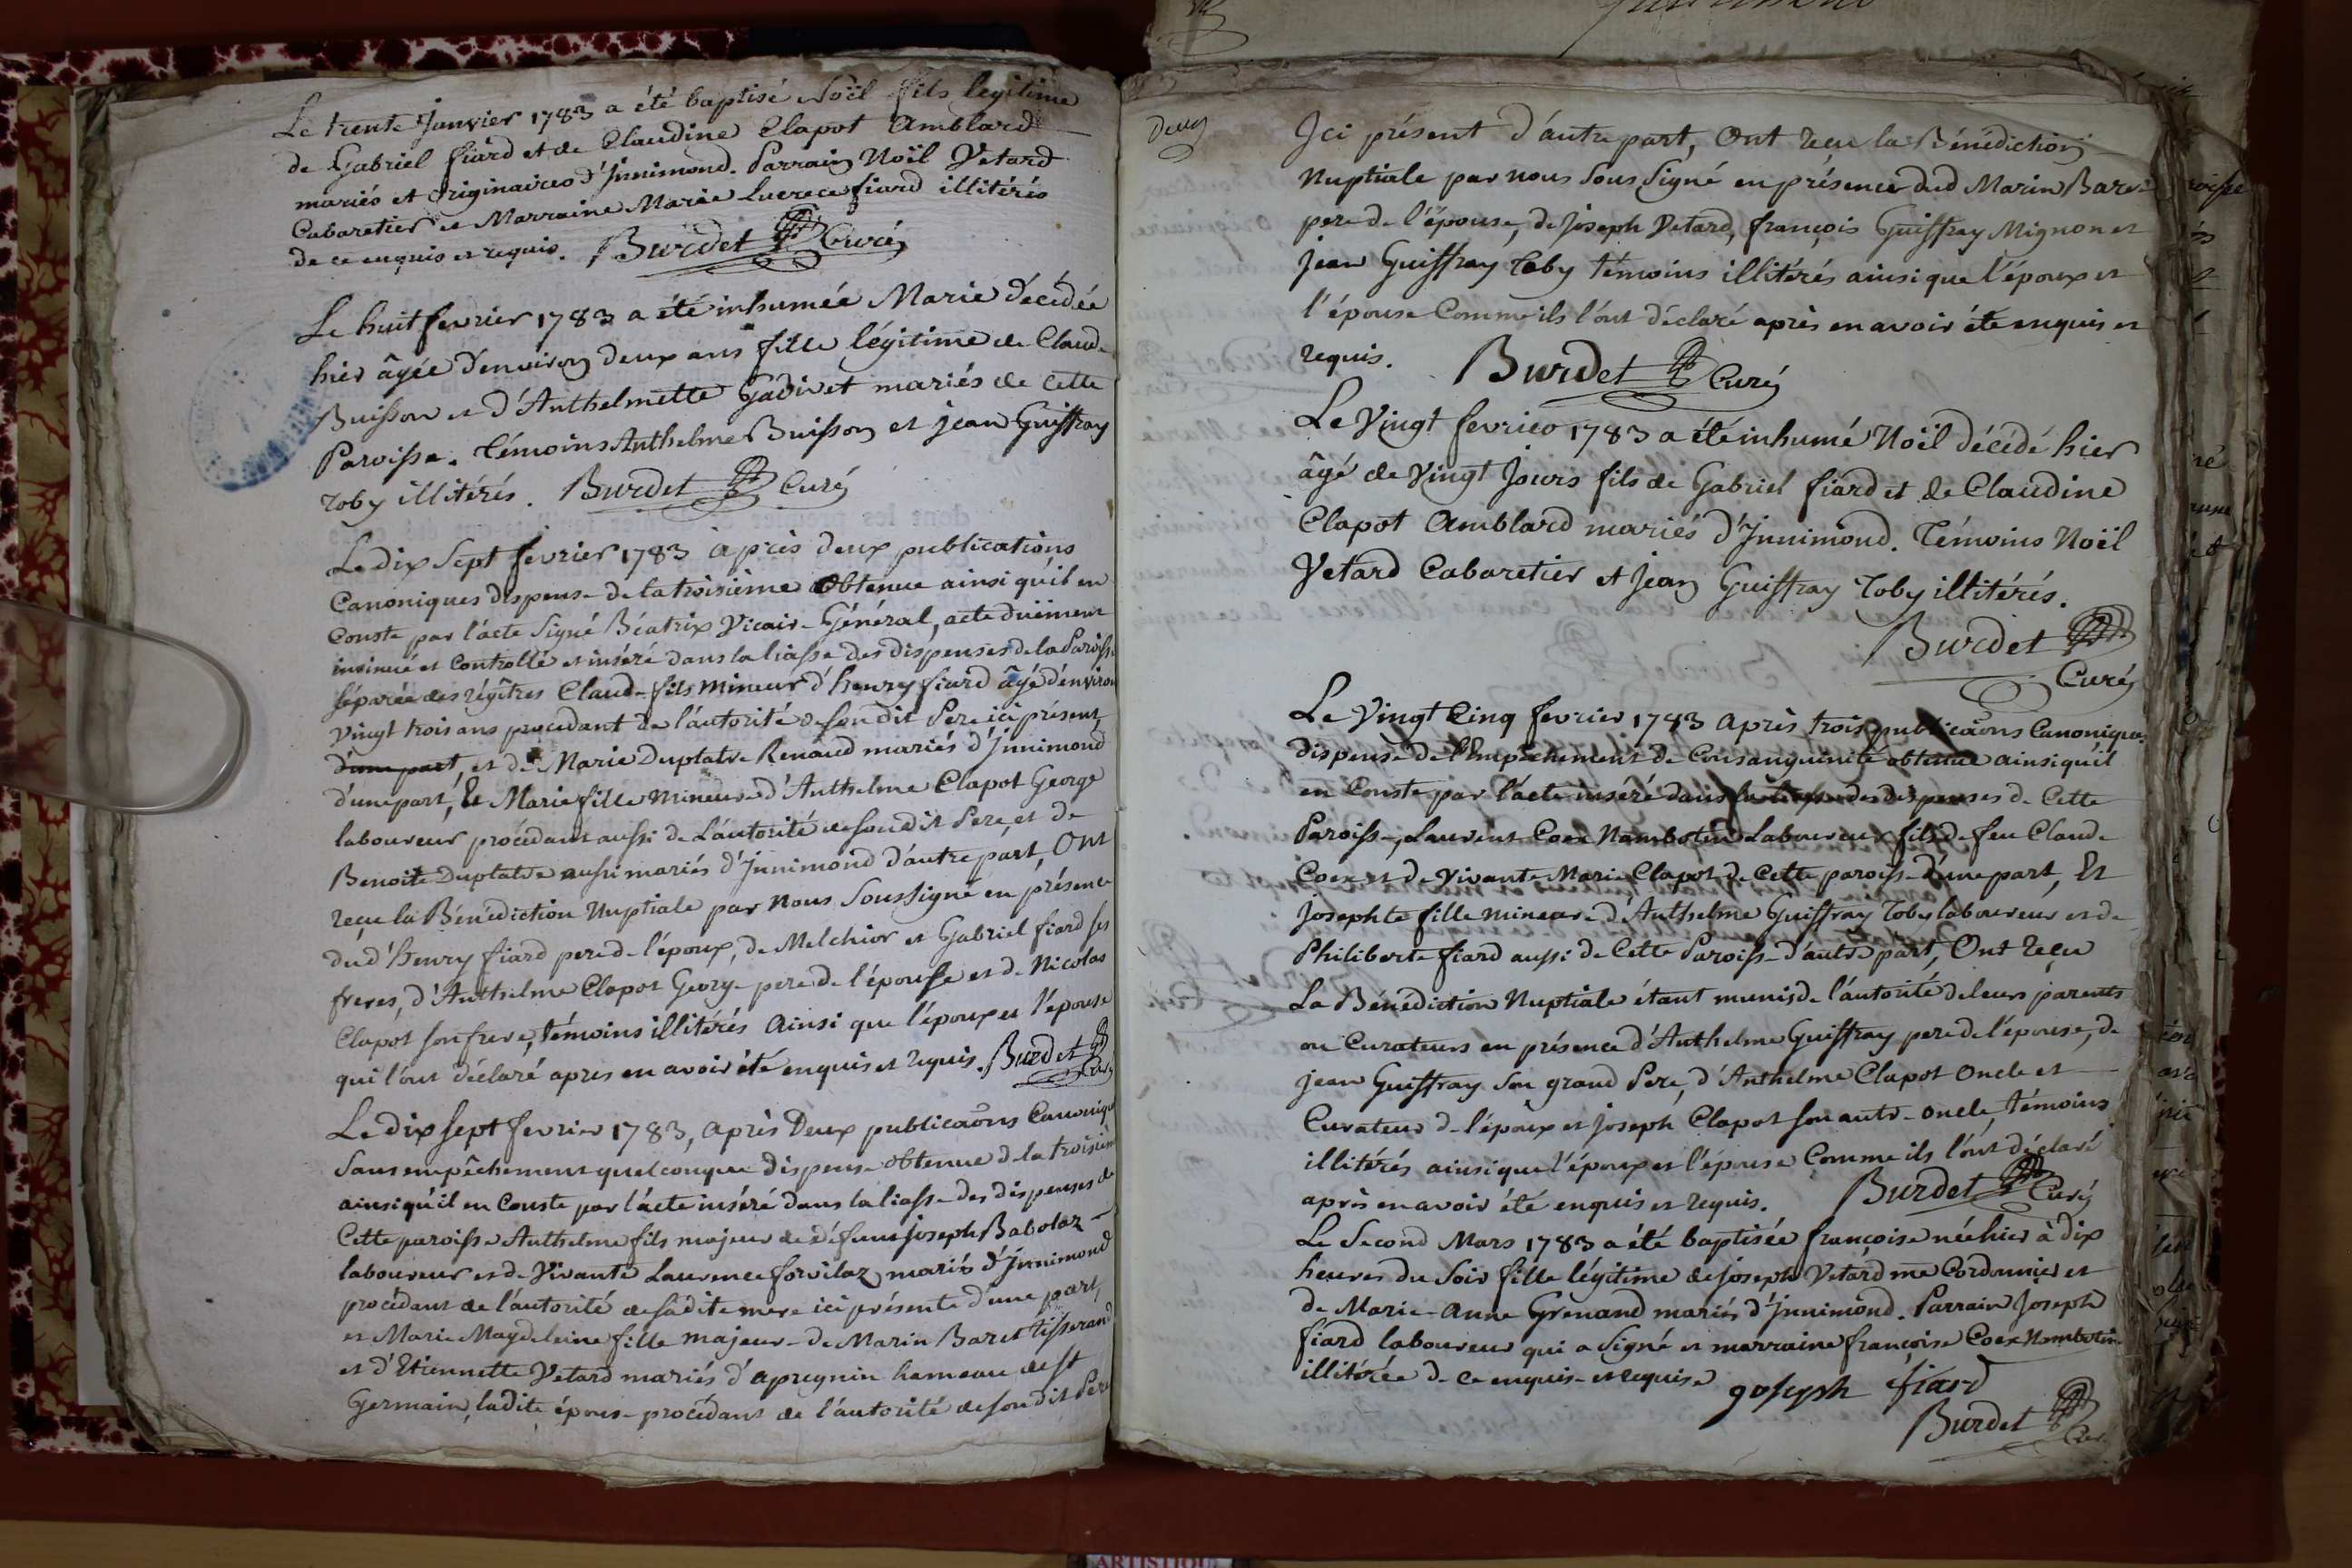 Le trente Janvier 1783 a été baptisé Noël fils legitime
de Gabriel fiard et de Claudine Clapot Amblard
mariés et originaires d'Jnnimond. Parrain Noël Vetard
Cabaretier et Marraine Marie Lucrece fiard illitérés
de ce enquis et requis. Burdet Curé
Le huit fevrier 1783 a été inhumée Marie décédée
hier âgée d'environ deux ans fille légitime de Claude
Buisson et d'Anthelmette Gadivet mariés de cette
Paroisse. Témoins Anthelme Buisson et jean Guiffray
Toby illitérés. Burdet Curé
Le dix Sept fevrier 1783 après deux publications
Canoniques dispense de la troisième obtenue ainsi qu'il en
Conste par l'acte Signé Béatrix Vicaire-Général, acte duëment
insinué et Controllé et inséré dans la liasse des dispenses de la Paroisse
séparée des régîtres Claude fils mineur d'henry fiard âgé d'environ
vingt trois ans procedant de l'autorité de son dit Pere ici présent
d'une part, et de Marie Duplatre Renaud mariés d'Jnnimond
d'une part, Et Marie fille mineure d'Anthelme Clapot George
laboureur procédant aussi de L'autorité de son dit Pere, et de
Benoite Duplatre aussi mariés d'Jnnimond d'autre part, Ont
reçu la Bénédiction Nuptiale par Nous Soussigné en présence
dud d'henry fiard pere de l'époux, de Melchior et Gabriel fiard ses
freres, d'Anthelme Clapot George pere de l'épouse et de Nicolas
Clapot son frere, témoins illitérés Ainsi que l'époux et l'épouse
qui l'ont déclaré apres en avoir été enquis et requis. Burdet Curé
Le dix sept fevrier 1783, après Deux publicaõns Canoniques
Sans empêchement quelconque dispense obtenue de la troisieme
ainsi qu'il en Conste par l'acte inséré dans la liasse des dispenses de
Cette paroisse Anthelme fils majeur de défunt joseph Babolaz
laboureur et de Vivante Laurence forvilaz mariés d'Jnnimond
procédant de l'autorité de sadite mere ici présente d'une part,
et Marie Magdeleine fille majeure de Marin Baret tisserand
et d'Etiennette Vetard mariés d'apregnin hameau de St
Germain, ladite épouse procédant de l'autorité de son dit Pere
Deux
Jci présent d'autre part, Ont reçu la Bénédiction
Nuptiale par nous Soussigné en présence dud Marin Baret
pere de l'épouse, de Joseph Vetard, françois Guiffray Mignon et
jean Guiffray Toby témoins illitérés ainsi que l'époux et
l'épouse Comme ils l'ont déclaré après en avoir été enquis et
requis. Burdet Curé
Le Vingt fevrier 1783 a été inhumé Noël décédé hier
âgé de Vingt Jours fils de Gabriel fiard et de Claudine
Clapot Amblard mariés d'Jnnimond. Témoins Noël
Vetard Cabaretier et Jean Guiffray Toby illitérés.
Burdet
Curé
Le Vingt Cinq fevrier 1783 Après trois publicaõns Canoniques
dispense de l'Empêchement de Consanguinité obtenue ainsi qu'il
en Conste par l'acte inséré dans la liasse des dispenses de Cette
Paroisse, Laurent Coex Nambotin Laboureur fils de feu Claude
Coex et de Vivante Marie Clapot de Cette paroisse d'une part, Et
Josephte fille mineure d'Anthelme Guiffray Toby laboureur et de
Philiberte fiard aussi de Cette Paroisse d'autre part, Ont reçu
La Bénédiction Nuptiale étant munis de l'autorité de leurs parents
ou Curateurs en présence d'Anthelme Guiffray pere de l'épouse, de
jean Guiffray Son grand Pere, d'Anthelme Clapot Oncle et
Curateur de l'époux et joseph Clapot son autre oncle, témoins
illitérés ainsi que l'époux et l'épouse Comme ils l'ont déclaré
après en avoir été enquis et requis. Burdet Curé
Le Second Mars 1783 a été baptisée françoise née hier à dix
heures du Soir fille légitime de joseph Vetard me Cordonnier et
de Marie-Anne Grenand mariés d'Jnnimond. Parrain Joseph
fiard laboureur qui a Signé et marraine françoise Coex Nambotin
illitérée de ce enquise et requise
joseph fiard
Burdet
Curé
ARTISTIQUE